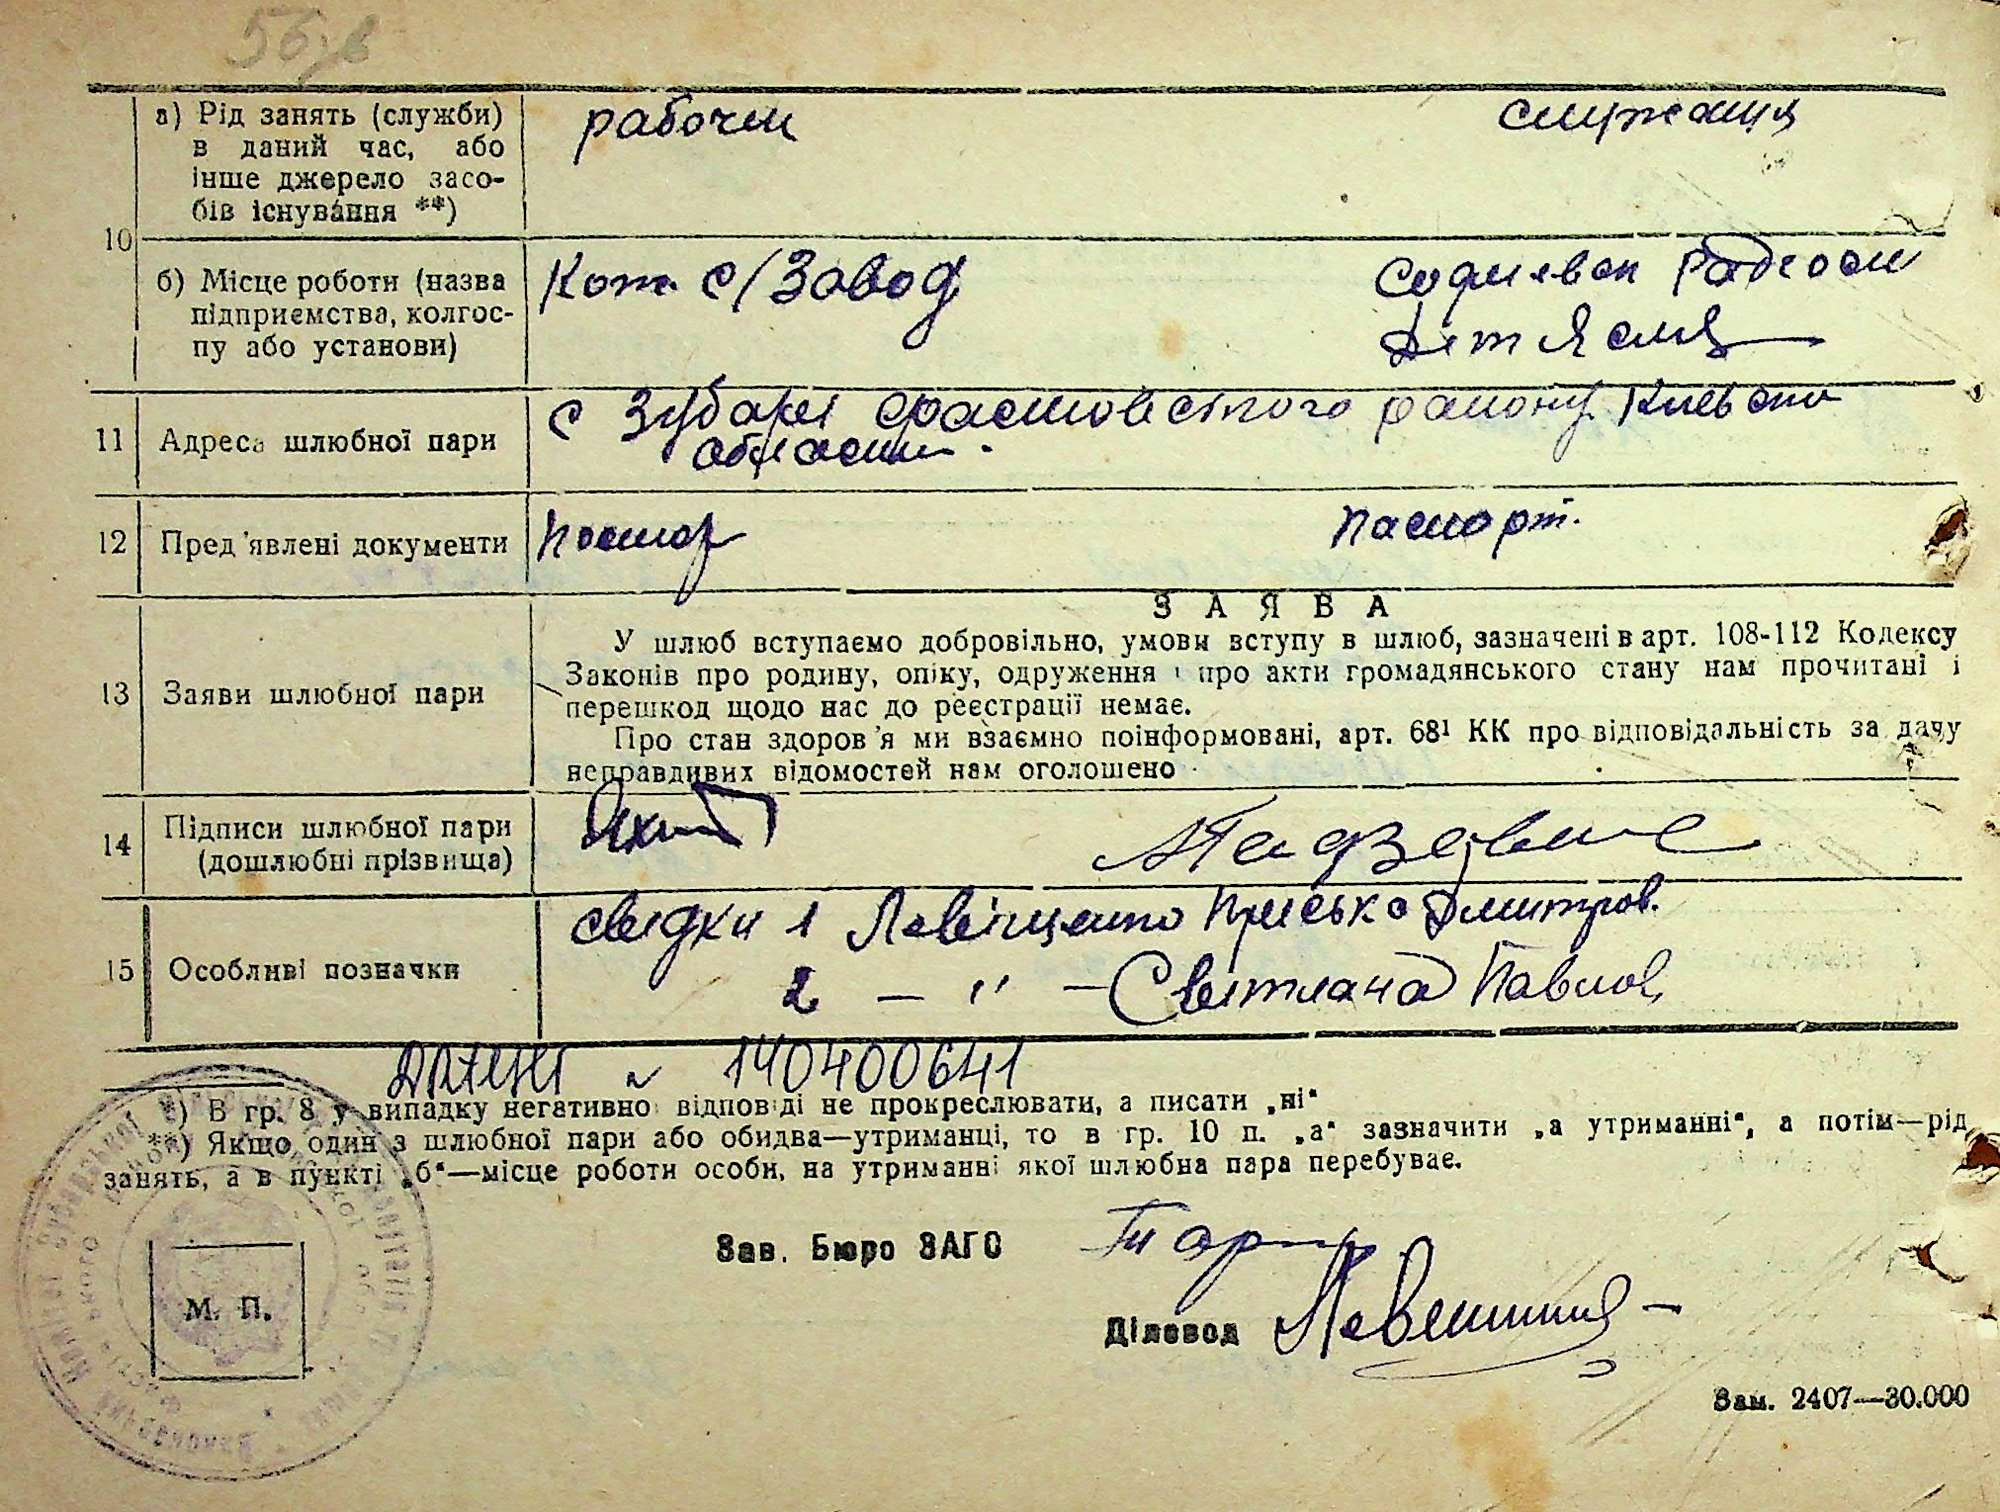 а) Рід занять (служби)
в даний час, або
інше джерело засо-
бів існування **)
рабочи служаща
10
б) Місце роботи (назва
підприємства, колгос-
пу або установи)
Кож с/Завод
дет Ясля
11 Адреса шлюбної пари
с Зубари району Київской
области.
12 Пред'явлені документи
Паспорт.
ЗАЯВА
13 Заяви шлюбної пари
У шлюб вступаємо добровільно, умови вступу в шлюб, зазначені в арт. 108-112 Кодексу
Законів про родину, опіку, одруження і про акти громадянського стану нам прочитані і
перешкод щодо нас до реєстрації немає.
Про стан здоров'я ми взаємно поінформовані, арт. 68¹ КК про відповідальність за дачу
неправдивих відомостей нам оголошено
14 Підписи шлюбної пари
(дошлюбні прізвища)
15 Особливі позначки
свідки 1 Присько Дмитров.
2 — " — Світлана Павлов.
140400641
*) В гр. 8 у випадку негативної відповіді не прокреслювати, а писати „ні“
**) Якщо один з шлюбної пари або обидва—утриманці, то в гр. 10 п. „а“ зазначити „а утриманні“, а потім—рід
занять, а в пункті „б“—місце роботи особи, на утриманні якої шлюбна пара перебуває.
Зав. Бюро ЗАГС
М. П.
Діловод
Зам. 2407—30.000